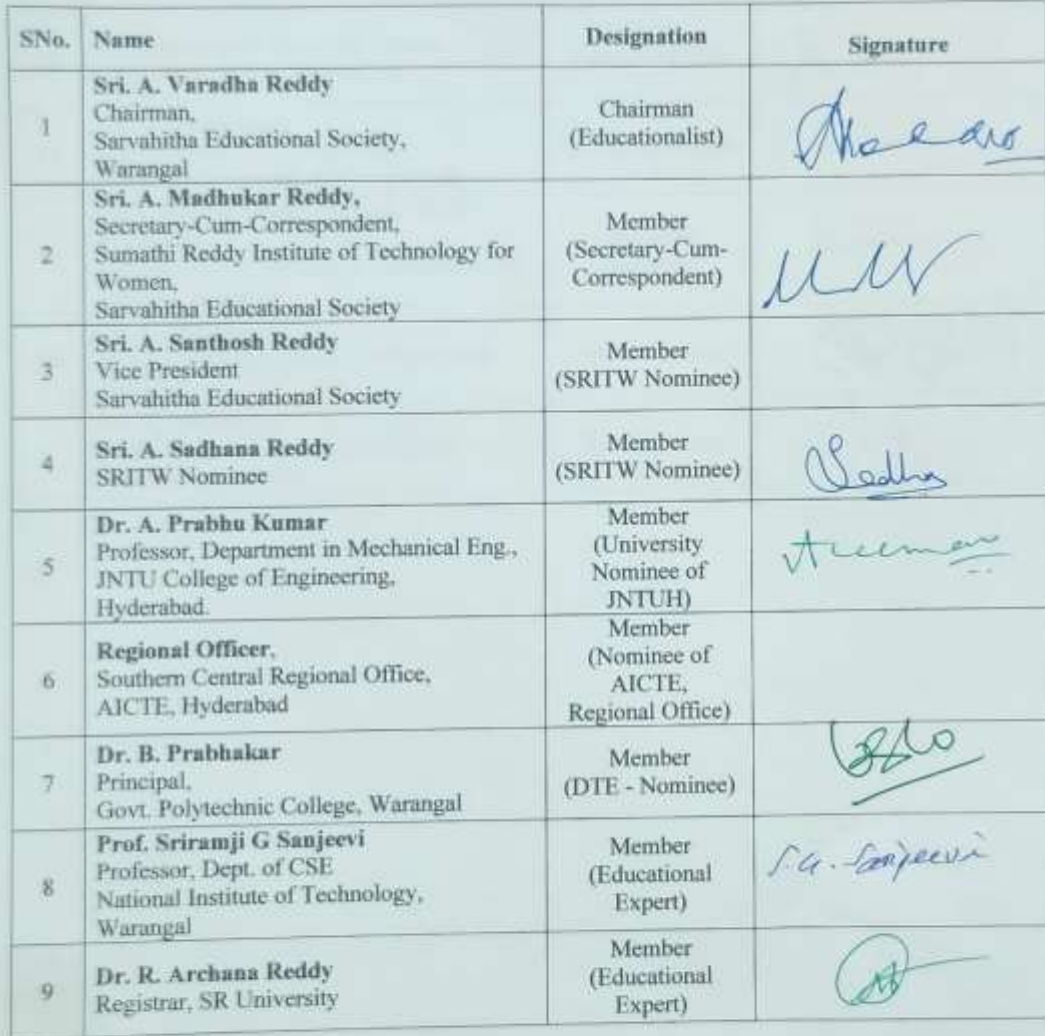 SNo. Name Designation Signature
1
Sri. A. Varadha Reddy
Chairman,
Sarvahitha Educational Society,
Warangal
Chairman
(Educationalist)
2
Sri. A. Madhukar Reddy,
Secretary-Cum-Correspondent,
Sumathi Reddy Institute of Technology for
Women,
Sarvahitha Educational Society
Member
(Secretary-Cum-
Correspondent)
3
Sri. A. Santhosh Reddy
Vice President
Sarvahitha Educational Society
Member
(SRITW Nominee)
4
Sri. A. Sadhana Reddy
SRITW Nominee
Member
(SRITW Nominee)
5
Dr. A. Prabhu Kumar
Professor, Department in Mechanical Eng.,
JNTU College of Engineering,
Hyderabad.
Member
(University
Nominee of
JNTUH)
6
Regional Officer,
Southern Central Regional Office,
AICTE, Hyderabad
Member
(Nominee of
AICTE,
Regional Office)
7
Dr. B. Prabhakar
Principal,
Govt. Polytechnic College, Warangal
Member
(DTE - Nominee)
8
Prof. Sriramji G Sanjeevi
Professor, Dept. of CSE
National Institute of Technology,
Warangal
Member
(Educational
Expert)
S.G. Sanjeevi
9
Dr. R. Archana Reddy
Registrar, SR University
Member
(Educational
Expert)